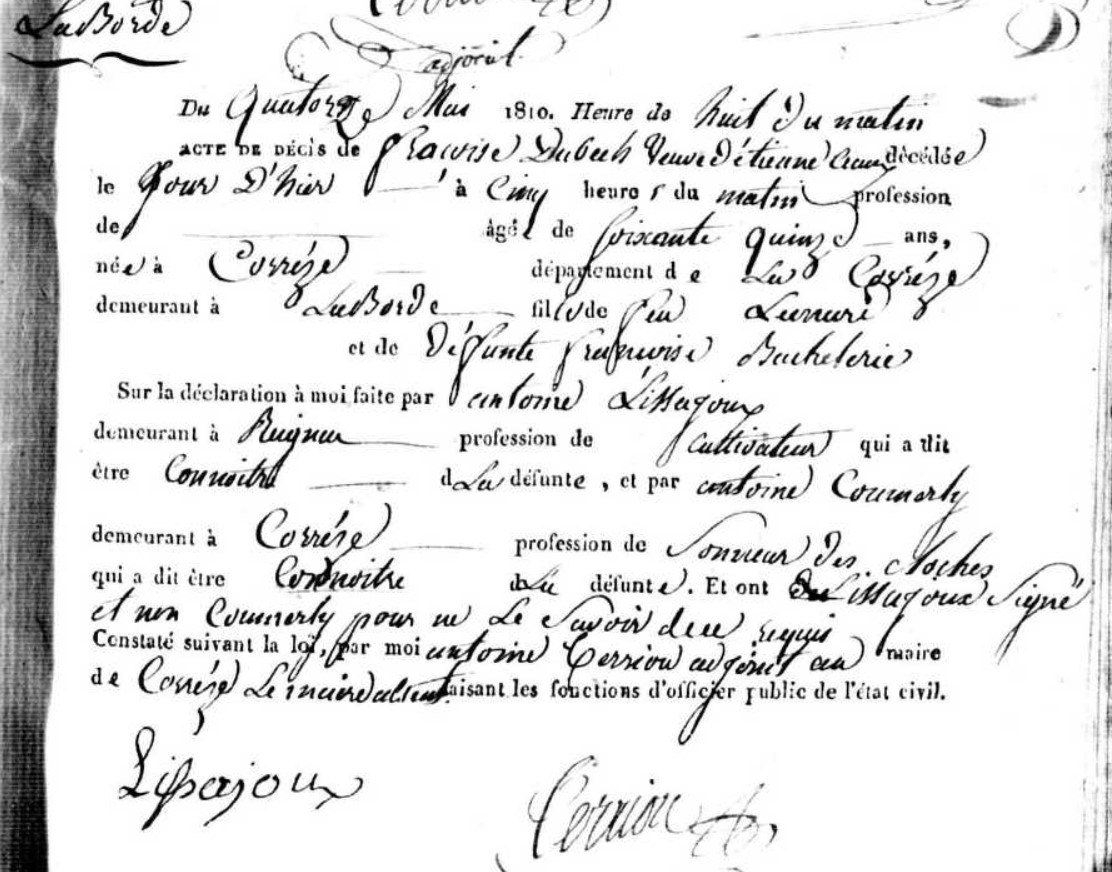 LaBorde
adjoint
Du Quatorze Mai 1810. Heure de huit du matin
ACTE DE DÉCÈS de fraçoise Dubech Veuve d'étienne décédée
le Jour D'hier à Cinq heures du matin profession
de âgée de Soixante quinze ans,
née à Corréze département de La Corréze
demeurant à LaBorde fille de feu Lunuré
et de défunte françoise Bachelerie
Sur la déclaration à moi faite par antoine Lissajoux
demeurant à profession de Cultivateur qui a dit
être Connoitre de La défunte, et par antoine Coumerly
demeurant à Corréze profession de Sonneur des Cloches
qui a dit être Connoitre La défunte. Et ont Lissajoux Signé
et non Coumerly pour ne Le Savoir de ce requis
Constaté suivant la loi, par moi antoine Cerriou adjoint au maire
de Corréze Le maire absent faisant les fonctions d'officier public de l'état civil.
Lissajoux
Cerriou